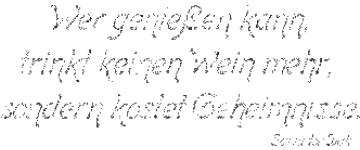 Wer genießen kann,
trinkt keinen Wein mehr,
sondern kostet Geheimnisse.